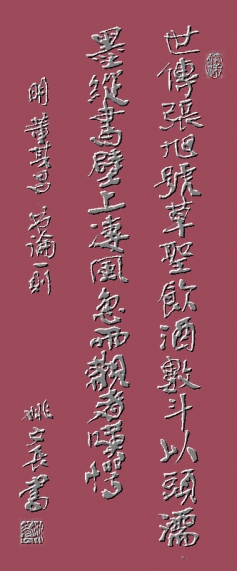 世傳張旭號草聖飲酒數斗以頭濡
墨縱書壁上凄風急雨觀者嘆愕
明董其昌書論一則
姚之辰書